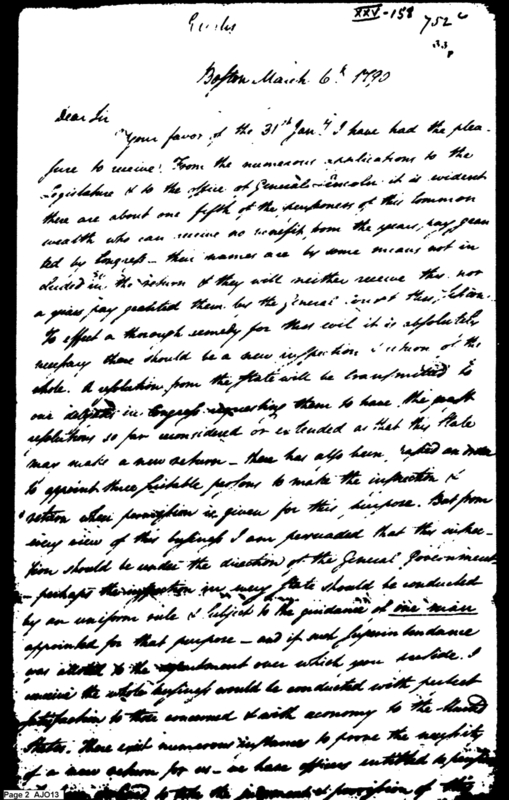 Eustis
XXV-158
752
33
Boston March 6th 1790
Dear Sir
Your favor of the 31st Jany I have had the plea-
sure to receive. From the numerous applications to the
Legislature & to the office of General Lincoln it is evident
there are about one fifth of the pensioners of this common
wealth who can receive no benefit from the years pay gran
ted by Congress - their names are by some means not in
cluded in the return & they will neither receive this nor
a years pay granted them by the General Court this Session.
To effect a thorough remedy for this evil it is absolutely
necessary there should be a new inspection & return of the
whole. A resolution from the State will be transmitted to
our delegates in Congress requesting them to have the past
resolutions so far reconsidered or extended as that this State
may make a new return - there has also been passed an order
to appoint three suitable persons to make the inspection &
return when permission is given for this purpose. But from
every view of this business I am persuaded that this inspec-
tion should be under the direction of the General Government
- perhaps the inspection in every State should be conducted
by an uniform rule & subject to the guidance of one man
appointed for that purpose - and if such Superintendance
was allotted to the department over which you preside I
conceive the whole business would be conducted with perfect
satisfaction to those concerned & with economy to the United
States. There exist numerous instances to prove the necessity
of a new return for us - we have officers entitled to pensions
to take the provision of this
Page 2 AJO13